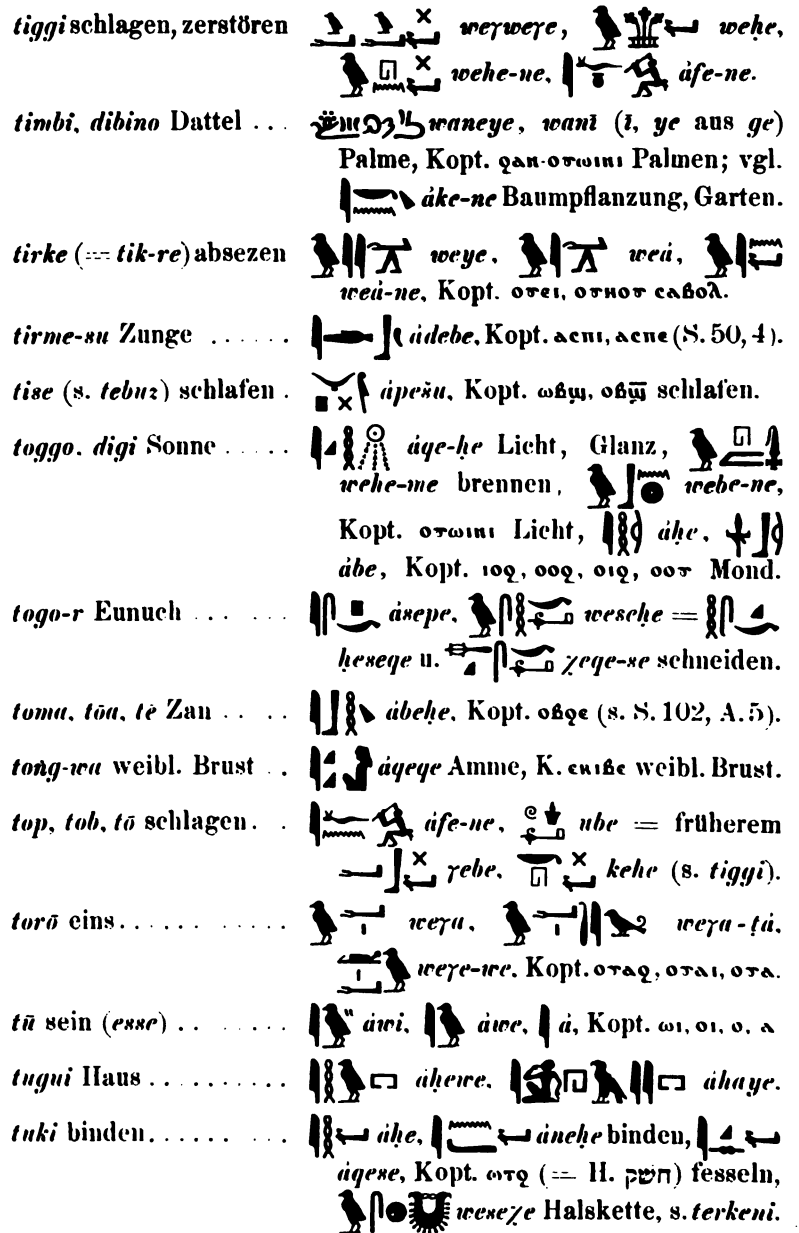 tiggi schlagen, zerstören weγweγe, weḥe,
wehe-ne, áfe-ne.
timbi, dibino Dattel ... waneye, wanī (ī, ye aus ge)
Palme, Kopt. ϩⲁⲛ-ⲟⲩⲱⲓⲛⲓ Palmen; vgl.
áke-ne Baumpflanzung, Garten.
tirke (= tik-re) absezen weye, weá,
weá-ne, Kopt. ⲟⲩⲉⲓ, ⲟⲩⲏⲟⲩ ⲥⲁⲃⲟⲗ.
tirme-su Zunge ...... ádebe, Kopt. ⲁⲥⲡⲓ, ⲁⲥⲡⲉ (S. 50, 4).
tise (s. tebuz) schlafen . ápešu, Kopt. ⲱⲃϣ, ⲟⲃϣ̅ schlafen.
toggo, digi Sonne ..... áqe-ḥe Licht, Glanz,
wehe-me brennen, webe-ne,
Kopt. ⲟⲩⲱⲓⲛⲓ Licht, áḥe,
ábe, Kopt. ⲓⲟϩ, ⲟⲟϩ, ⲟⲓϩ, ⲟⲟⲩ Mond.
togo-r Eunuch ... ... ásepe, wesḥe =
ḥeseqe u. χeqe-se schneiden.
toma, tōa, tē Zan .... ábeḥe, Kopt. ⲟⲃϩⲉ (s. S. 102, A. 5).
toṅg-wa weibl. Brust .. áqeqe Amme, K. ⲉⲕⲓⲃⲉ weibl. Brust.
top, tob, tō schlagen. . áfe-ne, ube = früherem
γebe, kehe (s. tiggi).
torō eins........... weγa, weγa-ṭá,
weγe-we, Kopt. ⲟⲩⲁϩ, ⲟⲩⲁⲓ, ⲟⲩⲁ.
tū sein (esse) ........ áwi, áwe, á, Kopt. ⲱⲓ, ⲟⲓ, ⲟ, ⲁ
tugui Haus .......... áḥewe, áhaye.
tuki binden.......... áḥe, áneḥe binden,
áqese, Kopt. ⲱⲧϩ (= H. חשק) fesseln,
weseχe Halskette, s. terkeni.